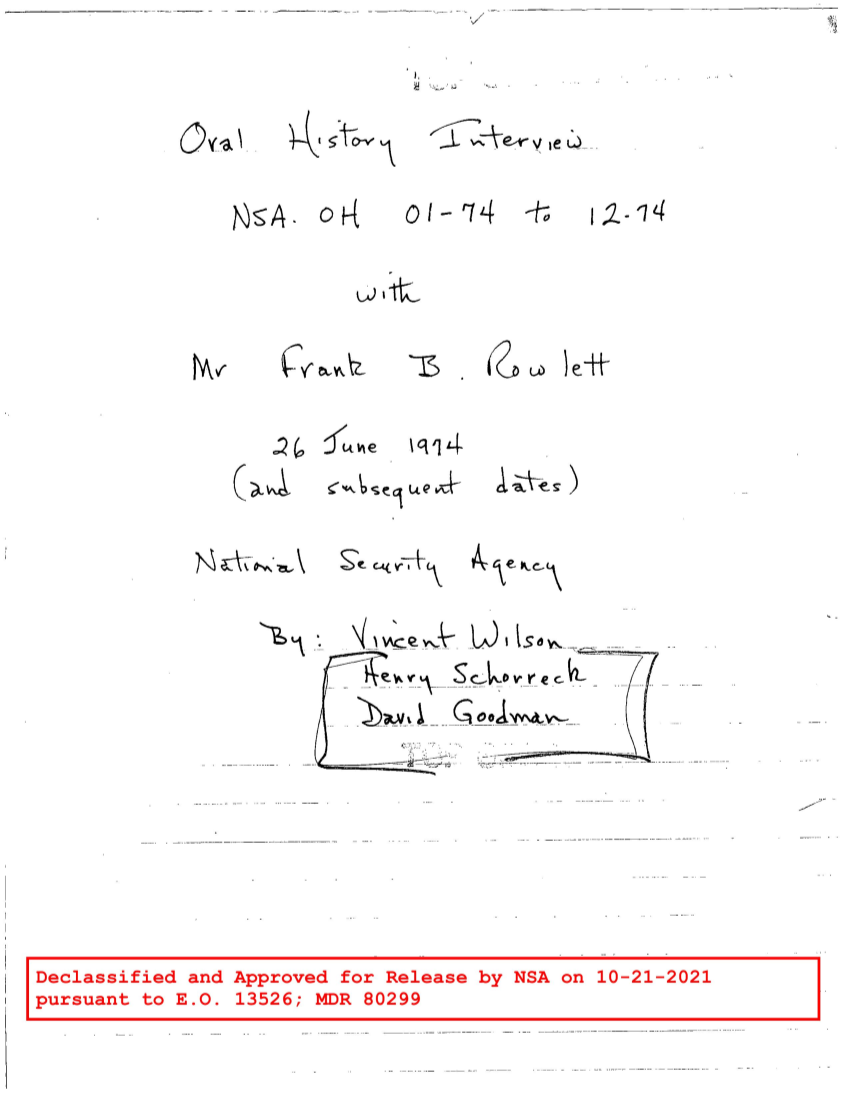 Oral History Interview
NSA. OH 01-74 to 12-74
with
Mr Frank B. Rowlett
26 June 1974
(and subsequent dates)
National Security Agency
By: Vincent Wilson
Henry Schorreck
David Goodman
Declassified and Approved for Release by NSA on 10-21-2021
pursuant to E.O. 13526; MDR 80299